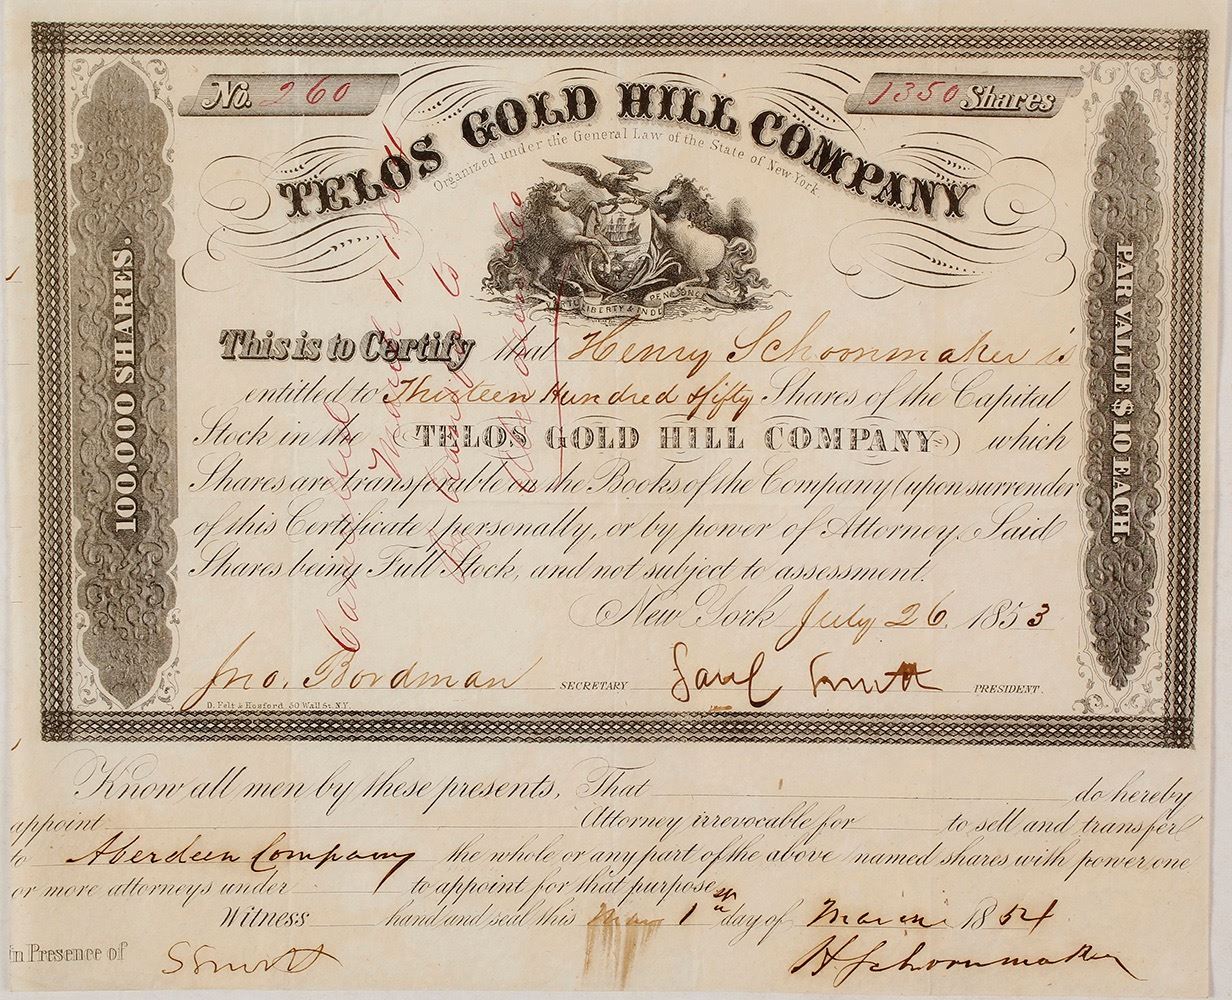 No. 260
1350 Shares
TELOS GOLD HILL COMPANY
Organized under the General Law of the State of New York.
LIBERTY & INDE PENCE
100,000 SHARES.
PAR VALUE $10 EACH.
This is to Certify that Henry Schoonmaker is
entitled to Thirteen Hundred & fifty Shares of the Capital
Stock in the TELOS GOLD HILL COMPANY which
Shares are transferable on the Books of the Company (upon surrender
of this Certificate) personally, or by power of Attorney. Said
Shares being Full Stock, and not subject to assessment.
New York July 26 1853
Jno. Bordman SECRETARY Saml Smith PRESIDENT.
D. Felt & Hosford, 50 Wall St. N.Y.
Cancelled
March 1. 1854
Know all men by these presents, That do hereby
appoint Attorney irrevocable for to sell and transfer
to Aberdeen Company the whole or any part of the above named shares with power one
or more attorneys under to appoint for that purpose
Witness hand and seal this 1st day of March 1854
In Presence of S Smith H Schoonmaker